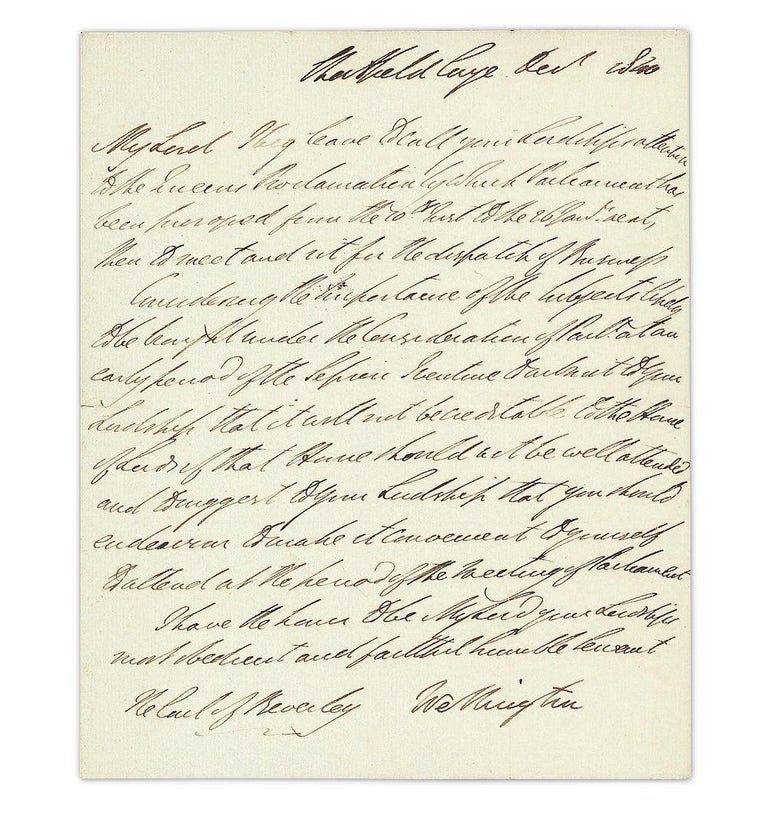 Strathfield Saye Decr 1840
My Lord I beg leave to call your Lordship's attention
to the Queens Proclamation by which Parliament has
been prorogued from the 10th Inst to the 26 Janr. next,
then to meet and sit for the dispatch of Business
Considering the Importance of the Subjects likely
to be brought under the Consideration of Parlt. at an
early period of the Session I venture to submit to your
Lordship that it will not be creditable to the House
of Lords if that House should not be well attended
and to suggest to your Lordship that you should
endeavour to make it convenient to yourself
to attend at the period of the Meeting of Parliament
I have the honor to be My Lord your Lordships
most obedient and faithful humble Servant
The Earl of Beverley Wellington